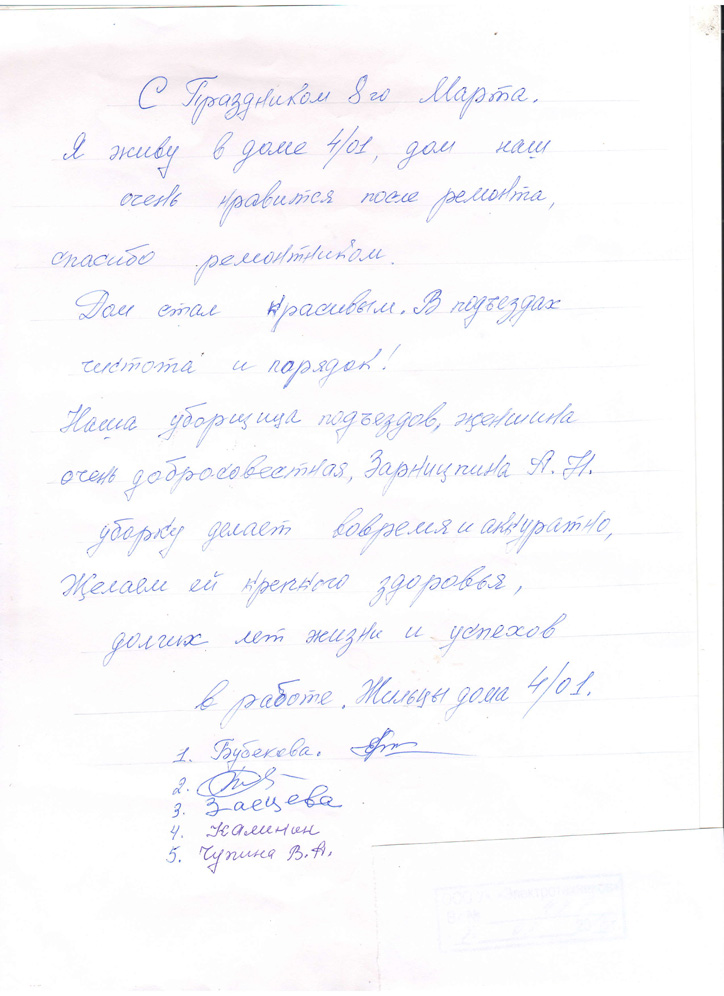 С Праздником 8го Марта.
Я живу в доме 4/01, дом наш
очень нравится после ремонта,
спасибо ремонтником.
Дом стал красивым. В подъездах
чистота и порядок!
Наша уборщица подъездов, женшина
очень добросовестная, Зарницина А. Н.
уборку делает вовремя и аккуратно,
Желаем ей крепкого здоровья,
долгих лет жизни и успехов
в работе. Жильцы дома 4/01.
1. Бубекова.
2.
3. Заецева
4. Калинин
5. Чупина В.А.